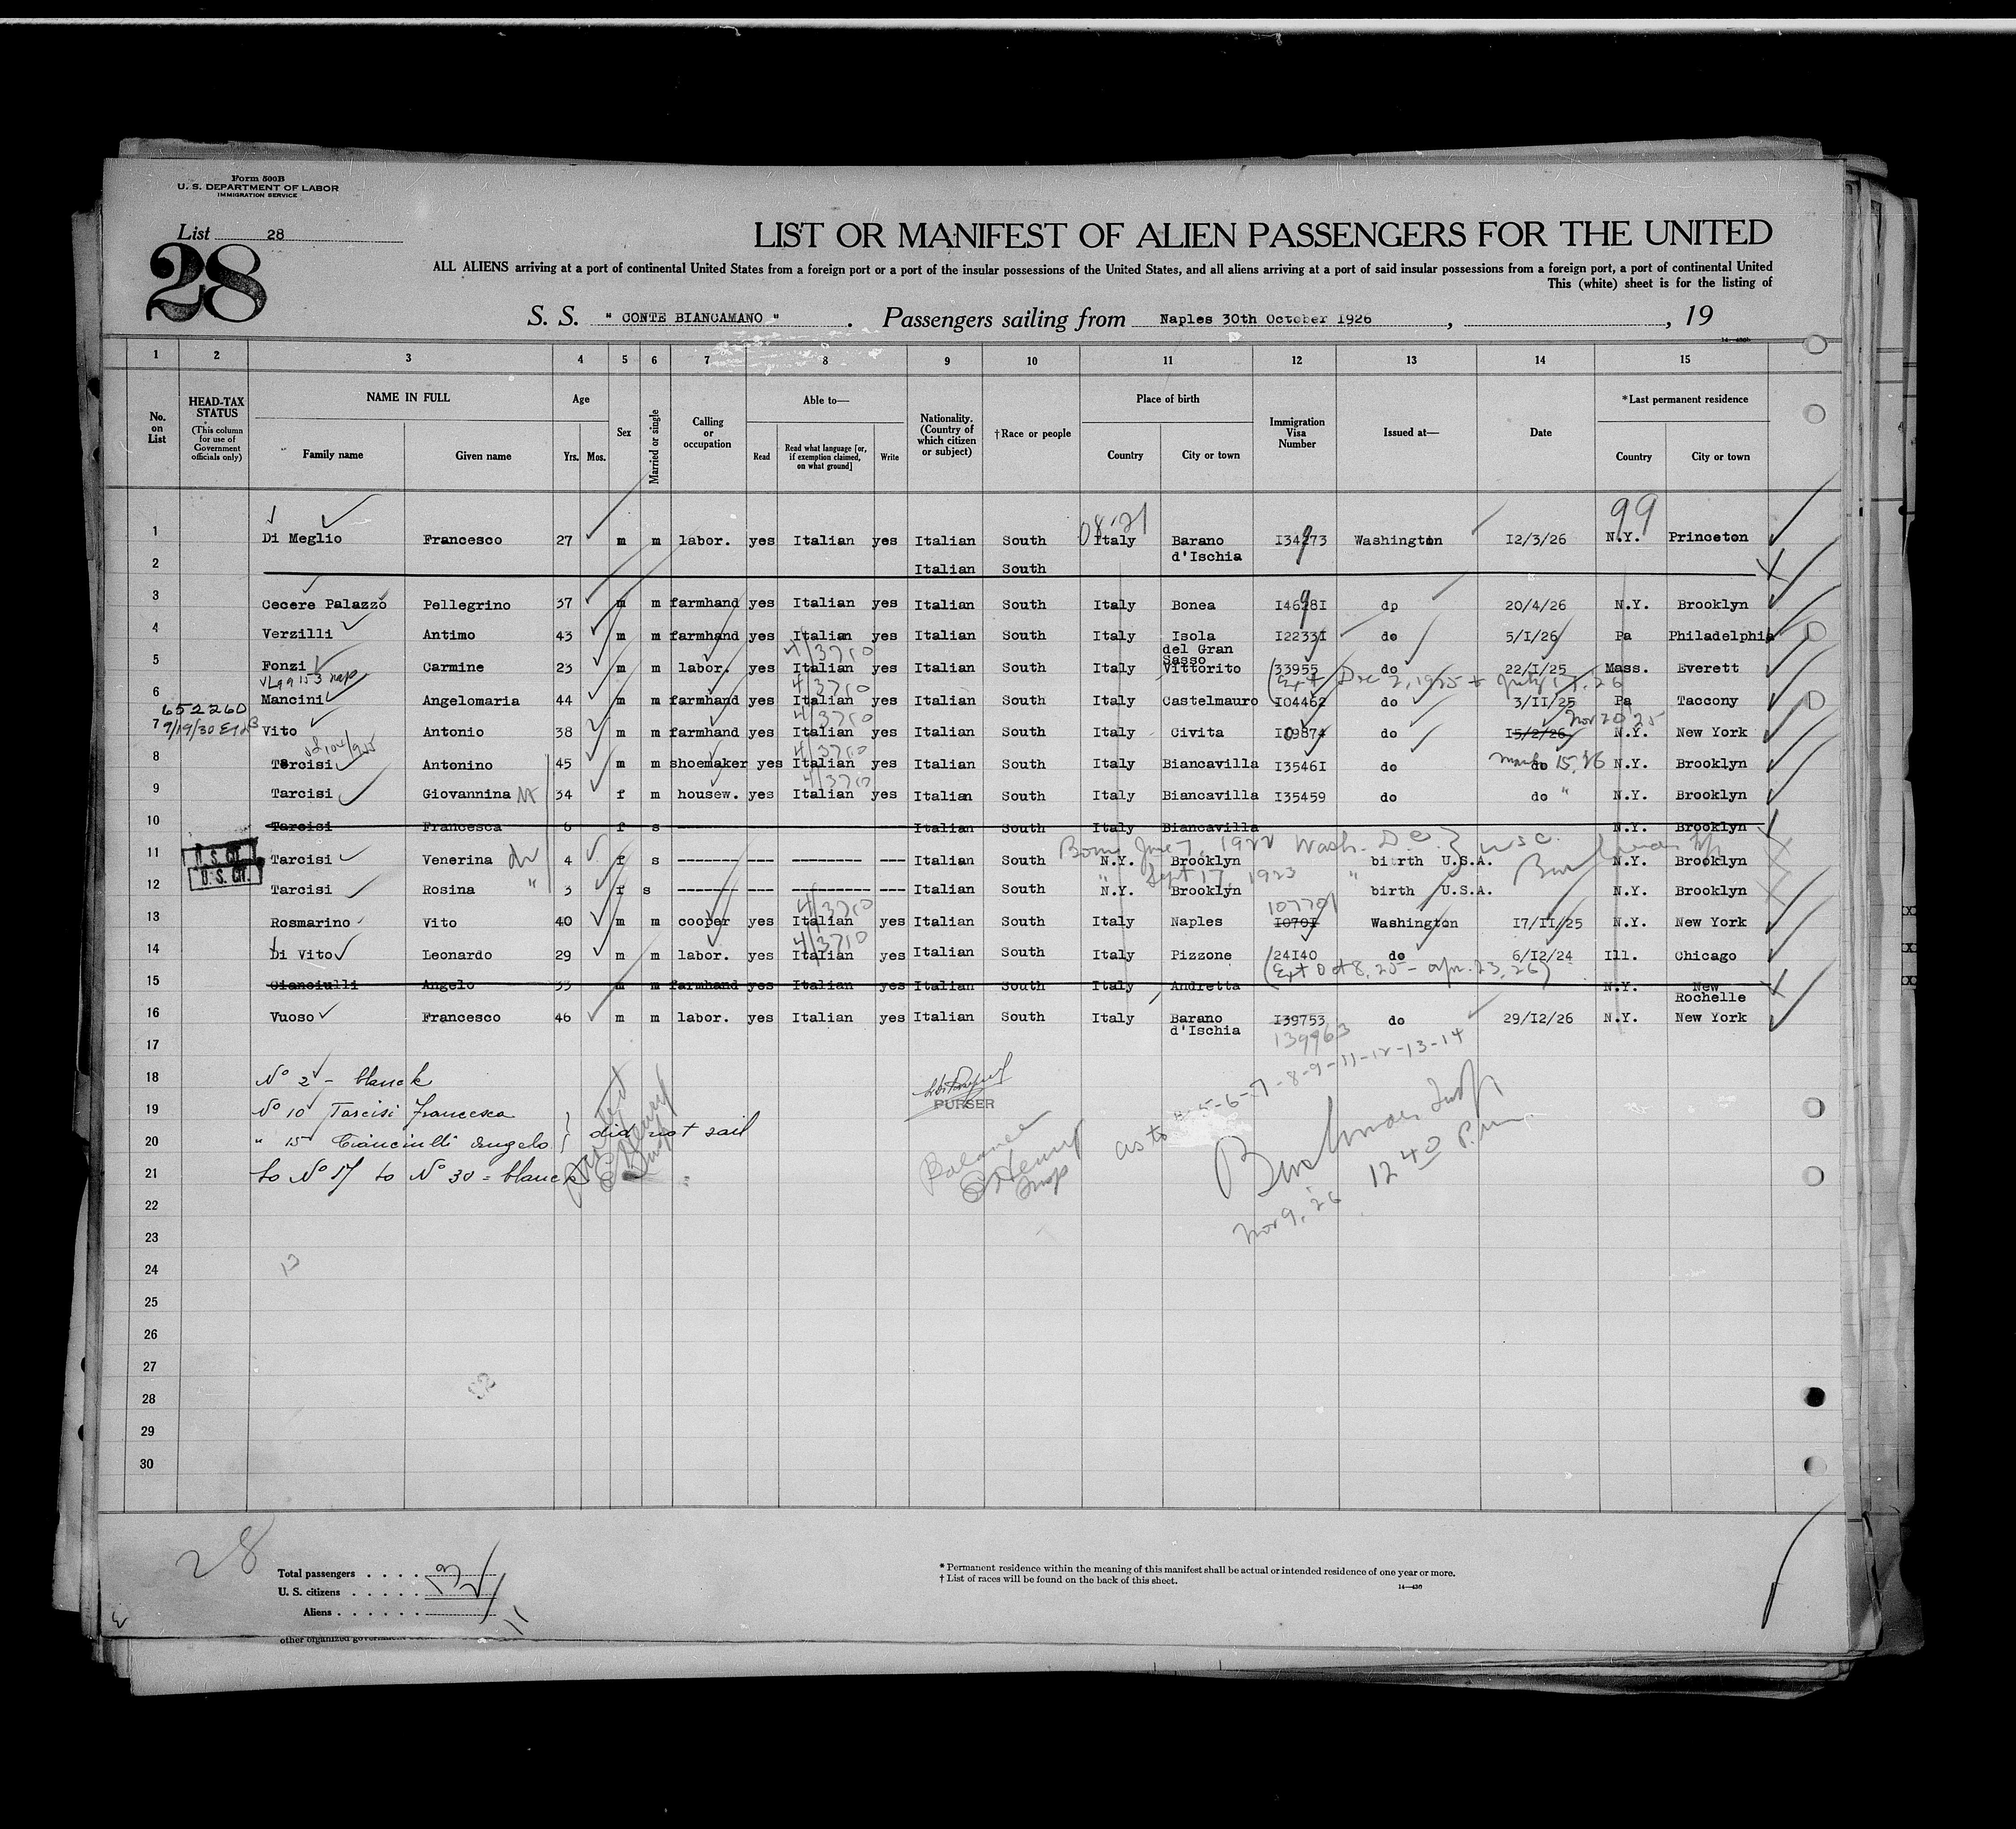 Form 500B
U. S. DEPARTMENT OF LABOR
IMMIGRATION SERVICE
List 28
28
LIST OR MANIFEST OF ALIEN PASSENGERS FOR THE UNITED
ALL ALIENS arriving at a port of continental United States from a foreign port or a port of the insular possessions of the United States, and all aliens arriving at a port of said insular possessions from a foreign port, a port of continental United
This (white) sheet is for the listing of
S. S. " CONTE BIANCAMANO " . Passengers sailing from Naples 30th October 1926 , , 19
1 2 3 4 5 6 7 8 9 10 11 12 13 14 15
No. on List
HEAD-TAX STATUS (This column for use of Government officials only)
NAME IN FULL Family name Given name
Age Yrs. Mos.
Sex
Married or single
Calling or occupation
Able to— Read Read what language [or, if exemption claimed, on what ground] Write
Nationality. (Country of which citizen or subject)
†Race or people
Place of birth Country City or town
Immigration Visa Number
Issued at—
Date
*Last permanent residence Country City or town
99
1 Di Meglio Francesco 27 m m labor. yes Italian yes Italian South Italy Barano d'Ischia I34273 Washington I2/3/26 N.Y. Princeton
2 Italian South
3 Cecere Palazzo Pellegrino 37 m m farmhand yes Italian yes Italian South Italy Bonea I4628I do 20/4/26 N.Y. Brooklyn
4 Verzilli Antimo 43 m m farmhand yes Italian yes Italian South Italy Isola del Gran Sasso I2233I do 5/I/26 Pa Philadelphia
4/3710
5 Fonzi Carmine 23 m m labor. yes Italian yes Italian South Italy Vittorito 33955 do 22/I/25 Mass. Everett
4/3710 (Ext Dec 2, 1925 + July 17, '26
6 Mancini Angelomaria 44 m m farmhand yes Italian yes Italian South Italy Castelmauro I04462 do 3/II/25 Pa Taccony
652260 4/3710 Nov 20 '25
7 9/19/30 Vito Antonio 38 m m farmhand yes Italian yes Italian South Italy Civita I09874 do I5/2/26 N.Y. New York
4/3710
8 Tarcisi Antonino 45 m m shoemaker yes Italian yes Italian South Italy Biancavilla I3546I do do March 15, 26 N.Y. Brooklyn
4/3710
9 Tarcisi Giovannina 34 f m housew. yes Italian yes Italian South Italy Biancavilla I35459 do do " N.Y. Brooklyn
10 Tarcisi Francesca 6 f s Italian South Italy Biancavilla N.Y. Brooklyn
Born June 7, 1922 Wash. D.C. } U S C.
11 U.S. CIT. Tarcisi Venerina 4 f s ------- --- -------- --- Italian South N.Y. Brooklyn birth U.S.A. N.Y. Brooklyn
" Sept 17, 1923 "
12 U.S. CIT. Tarcisi Rosina " 3 f s ------- --- --------- --- Italian South N.Y. Brooklyn birth U.S.A. N.Y. Brooklyn
4/3710 107701
13 Rosmarino Vito 40 m m cooper yes Italian yes Italian South Italy Naples I070I Washington I7/II/25 N.Y. New York
4/3710
14 Di Vito Leonardo 29 m m labor. yes Italian yes Italian South Italy Pizzone 24I40 do 6/I2/24 Ill. Chicago
(Ext Oct 8, 25 - Apr. 23, 26)
15 Cianciulli Angelo 35 m m farmhand yes Italian yes Italian South Italy Andretta N.Y. New Rochelle
16 Vuoso Francesco 46 m m labor. yes Italian yes Italian South Italy Barano d'Ischia I39753 do 29/I2/26 N.Y. New York
17 139963
18 No 2 - blanck
PURSER
5-6-7-8-9-11-12-13-14
19 No 10 Tarcisi Francesca
20 " 15 Cianciulli Angelo } did not sail
as to
21 to No 17 to No 30 = blanck
Balance
12 40 P.m
22
Nov 9, 26
23
24
13
25
26
27
28
29
30
28
Total passengers . . . . 13
U. S. citizens . . . . . 2
Aliens . . . . . . 11
* Permanent residence within the meaning of this manifest shall be actual or intended residence of one year or more.
† List of races will be found on the back of this sheet.
14—436